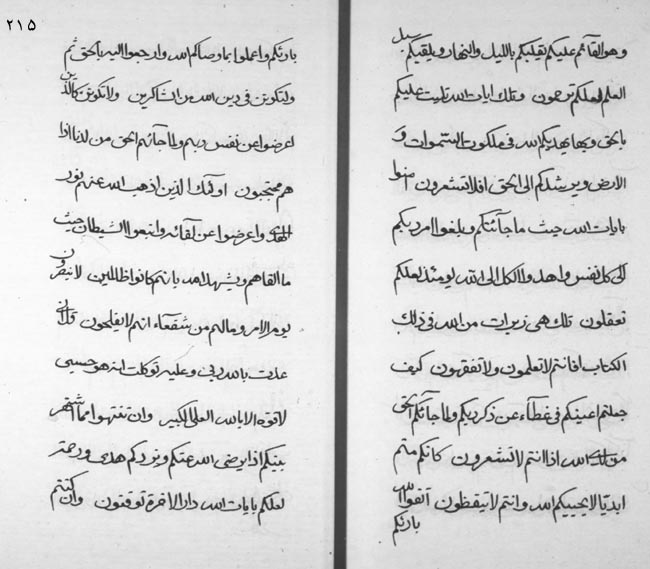 وهو القآئم عليكم يقلبكم بالليل والنهار ويلقيكم سبل
العلم لعلكم ترحمون وتلك ايات الله تليت عليكم
بالحق وبها يهديكم الله في ملكوت السموات و
الارض ويرشدكم الى الحق افلا تشعرون امنوا
بايات الله حيث ما جآئتكم وبلغوا امر ربكم
الى كل نفس واهدوا الكل الى الله يومئذ لعلكم
تعقلون تلك هى زبرات من الله في ذلك
الكتاب افانتم لا تعلمون ولا تفقهون كيف
جعلتم اعينكم في غطآء عن ذكر ربكم ولما جآئكم الحق
من الله اذا انتم لا تشعرون كانكم متم
ابديا لا يحييكم الله وانتم لا تيقظون اتقوا الله
بارئكم
٢١٥
بارئكم واعملوا بما وصاكم الله وارجعوا اليه بالحق ثم
ولتكونن في دين الله من الشاكرين ولا تكونن كالذين
اعرضوا عن نفس ربهم ولما جآئهم الحق من لدنا اذا
هم محتجبون اولئك الذين اذهب الله عنهم نور
الهدى واعرضوا عن لقائه واتبعوا الشيطان حيث
ما القاهم ويشهد الله بانهم كانوا ظالمين لا ينصرون
يوم الامر وما لهم من شفعآء انهم لا يفلحون قل انى
عذت بالله ربي وعليه توكلت انه هو حسبى
لا قوة الا بالله العلى الكبير وان تنتهوا مما شجر
بينكم اذا يرضى الله عنكم ويزدكم هدى ورحمة
لعلكم بايات الله دار الاخرة توقنون وان كنتم